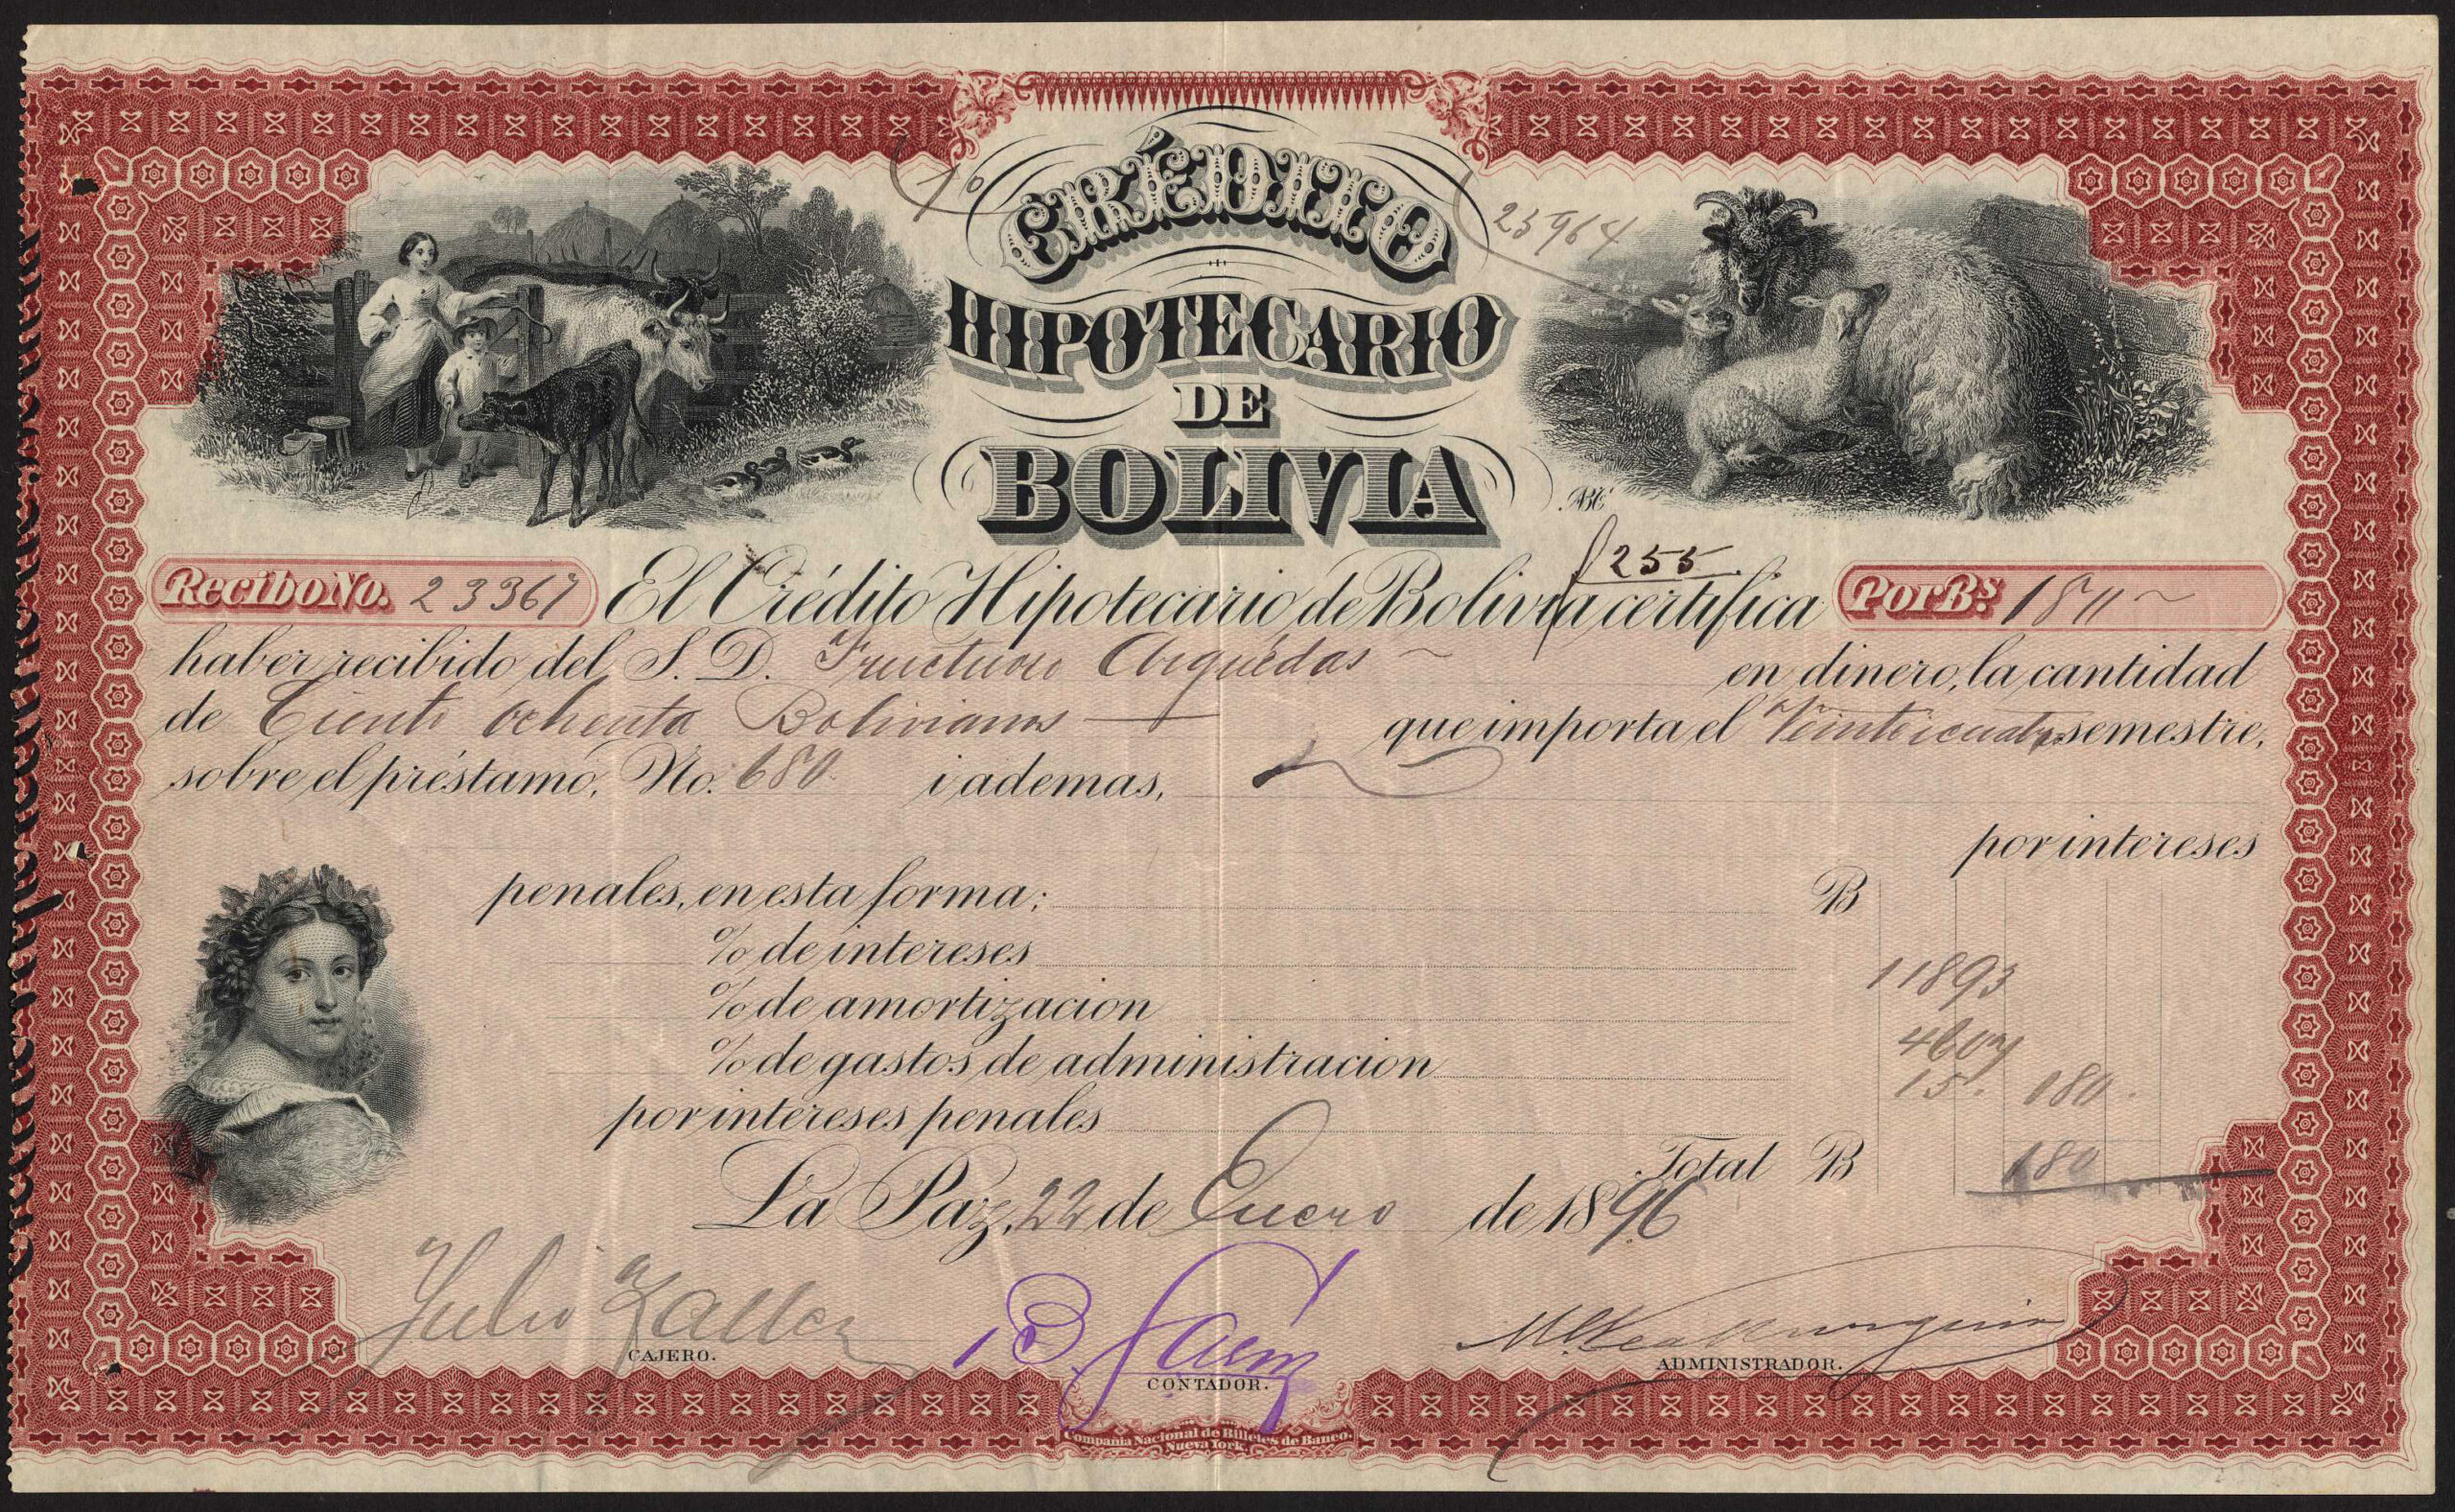 CRÉDITO
23964
HIPOTECARIO
DE
BOLIVIA
255
Recibo No. 23367 El Crédito Hipotecario de Bolivia certifica Por Bs. 180
haber recibido del S. D. Fructuoso Arguédas en dinero, la cantidad
de Ciento ochenta Bolivianos que importa el Veinticuatro semestre,
sobre el préstamo, No. 680. i ademas,
por intereses
penales, en esta forma; B
% de intereses 11893
% de amortizacion
% de gastos de administracion 4607
15. 180.
por intereses penales
Total B 180
La Paz, 22 de Enero de 1896
Julio Zalles
CAJERO.
CONTADOR.
ADMINISTRADOR.
Compañia Nacional de Billetes de Banco.
Nueva York.